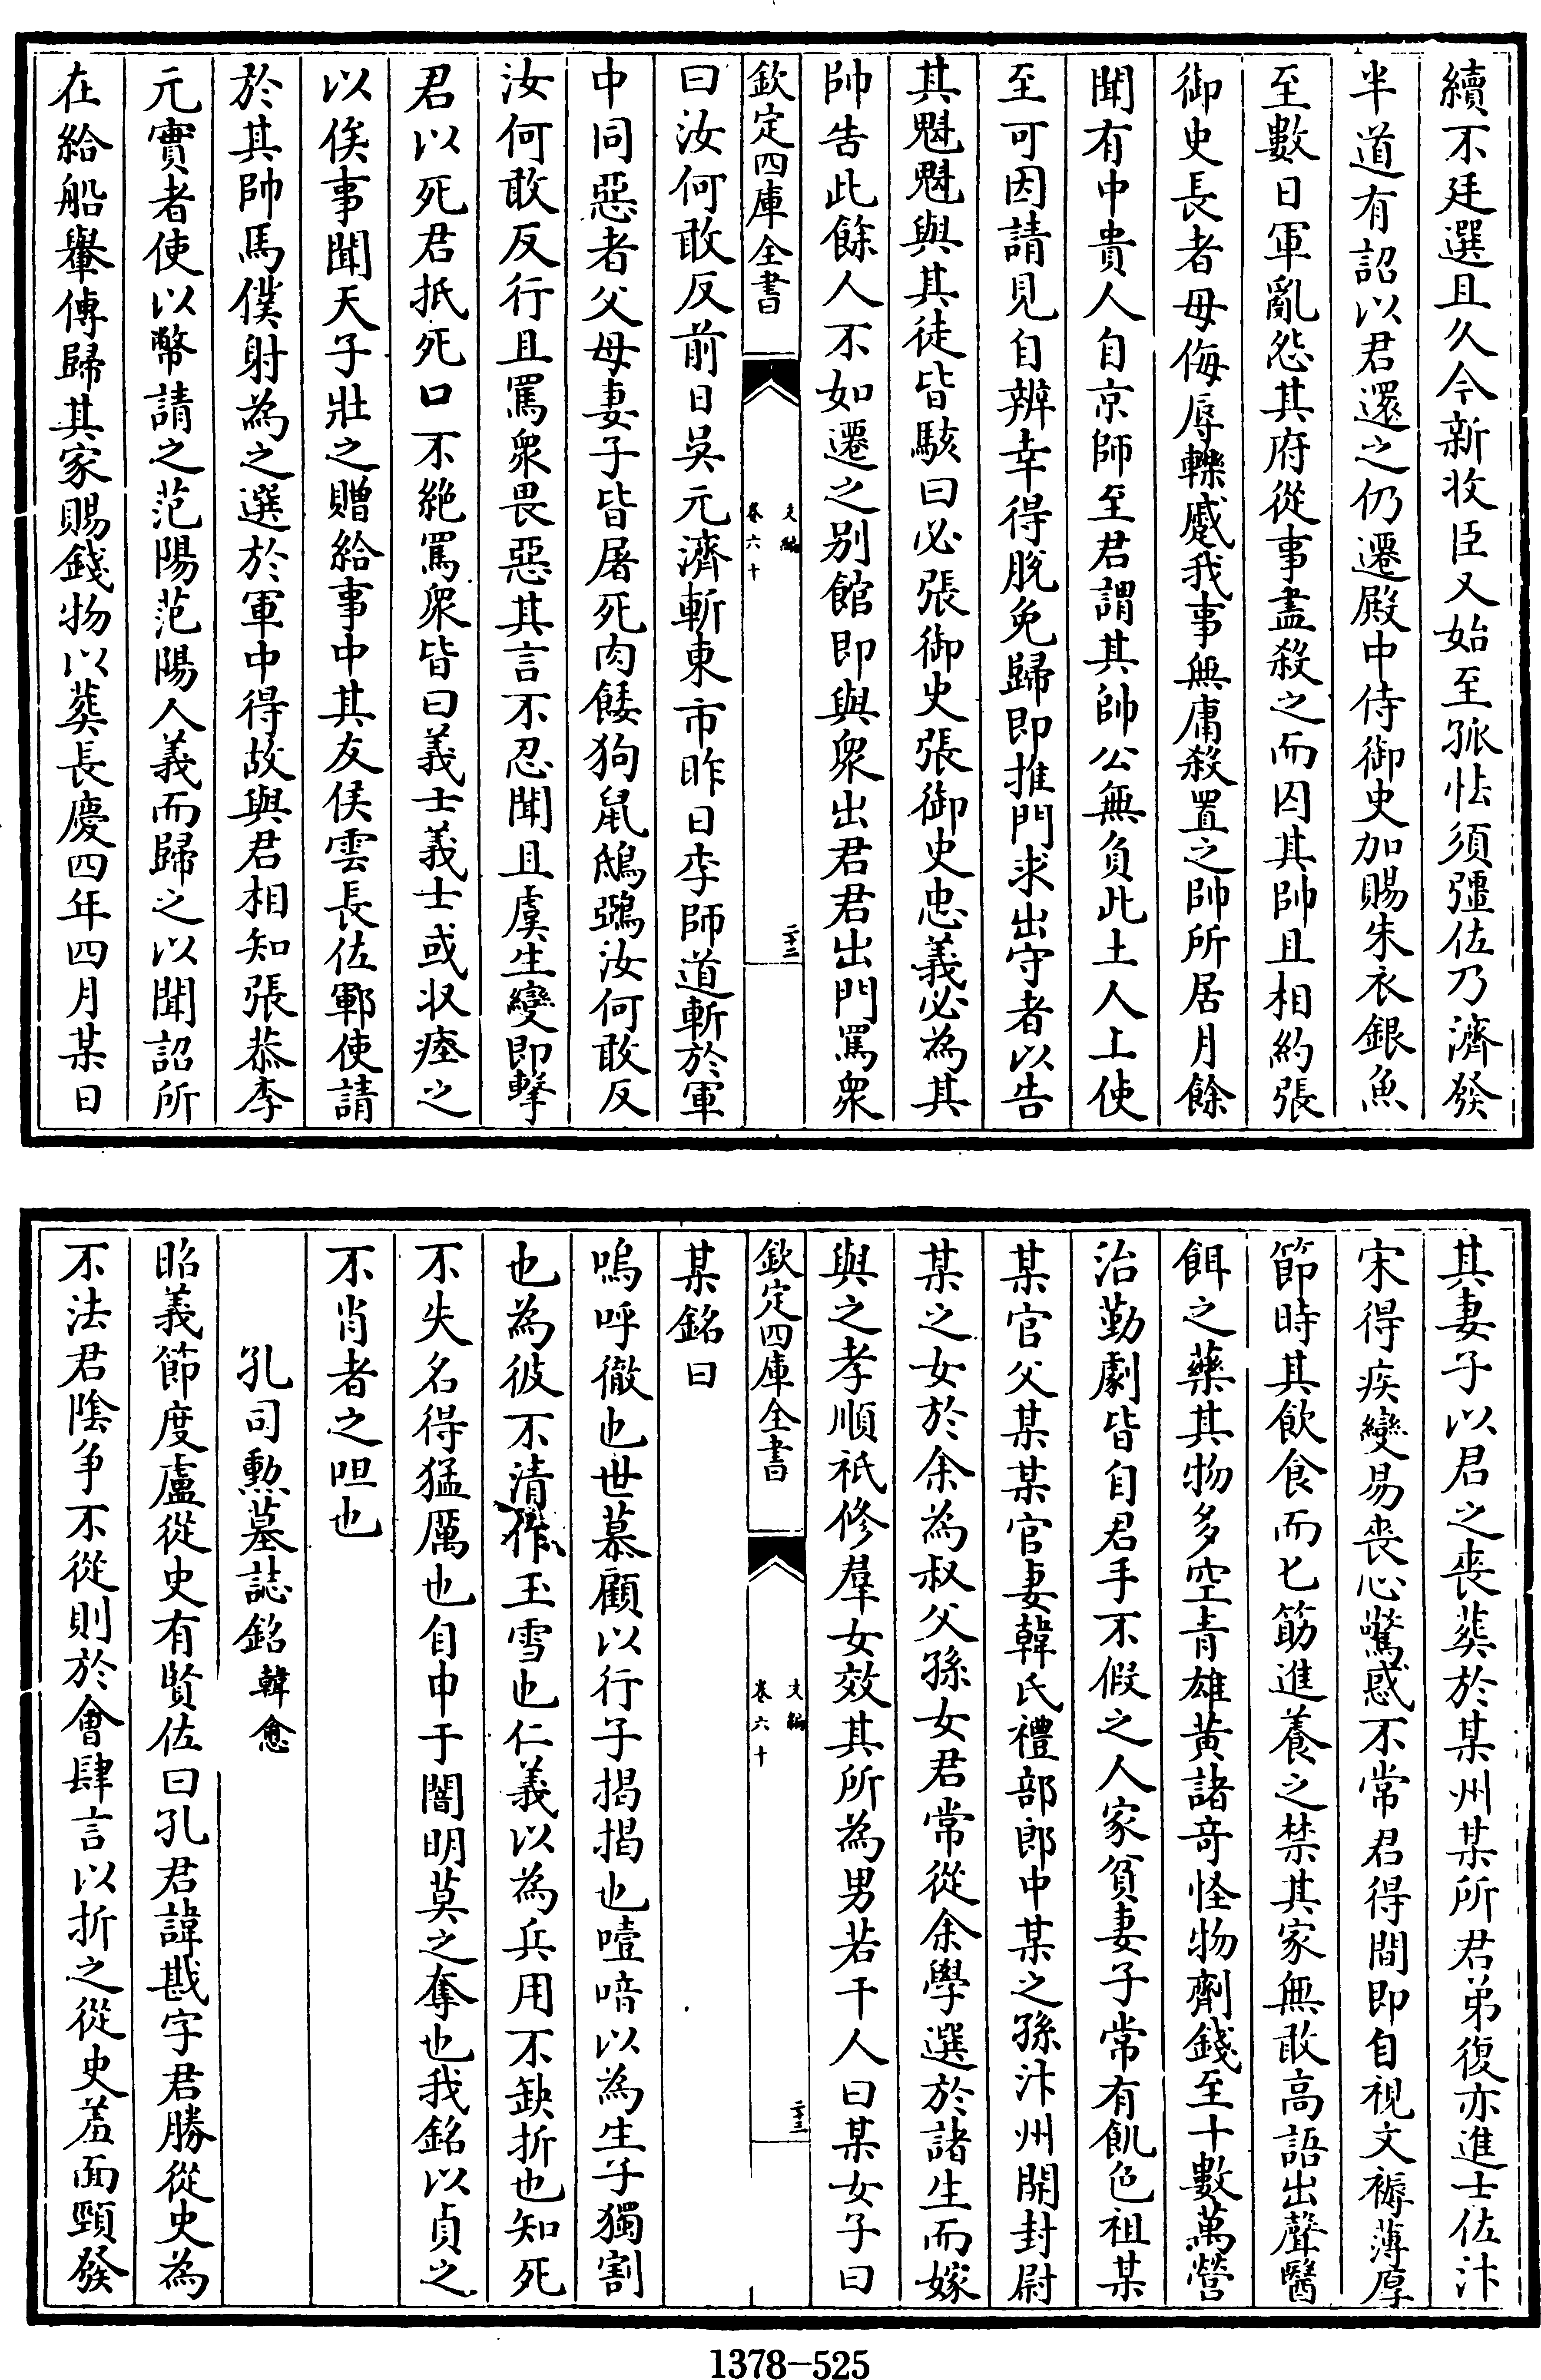 續不廷選且久今新收臣又始至孤怯須彊佐乃濟發
半道有詔以君還之仍遷殿中侍御史加賜朱衣銀魚
至數日軍亂怨其府從事盡殺之而囚其帥且相約張
御史長者毋侮辱轢蹙我事無庸殺置之帥所居月餘
聞有中貴人自京師至君謂其帥公無負此土人上使
至可因請見自辨幸得脫免歸即推門求出守者以告
其魁魁與其徒皆駭曰必張御史張御史忠義必為其
帥告此餘人不如遷之别館即與衆出君君出門罵衆
欽定四庫全書
文編
卷六十
二十三
曰汝何敢反前日吳元濟斬東市昨日李師道斬於軍
中同惡者父母妻子皆屠死肉餧狗鼠鴟鵶汝何敢反
汝何敢反行且罵衆畏惡其言不忍聞且虞生變即擊
君以死君抵死口不絶罵衆皆曰義士義士或収瘞之
以俟事聞天子壯之贈給事中其友侯雲長佐鄆使請
於其帥馬僕射為之選於軍中得故與君相知張恭李
元實者使以幣請之范陽范陽人義而歸之以聞詔所
在給船轝傳歸其家賜錢物以葬長慶四年四月某日
其妻子以君之喪葬於某州某所君弟復亦進士佐汴
宋得疾變易喪心驚惑不常君得間即自視文褥薄厚
節時其飲食而匕筯進養之禁其家無敢高語出聲醫
餌之藥其物多空青雄黄諸奇怪物劑錢至十數萬營
治勤劇皆自君手不假之人家貧妻子常有飢色祖某
某官父某某官妻韓氏禮部郎中某之孫汴州開封尉
某之女於余為叔父孫女君常從余學選於諸生而嫁
與之孝順祗修羣女效其所為男若干人曰某女子曰
欽定四庫全書
文編
卷六十
二十三
某銘曰
嗚呼徹也世慕顧以行子揭揭也噎喑以為生子獨割
也為彼不清作玉雪也仁義以為兵用不缺折也知死
不失名得猛厲也自申于闇明莫之奪也我銘以貞之
不肖者之呾也
孔司勲墓誌銘韓愈
昭義節度盧從史有賢佐曰孔君諱戡字君勝從史為
不法君隂爭不從則於會肆言以折之從史羞面頸發
1378-525